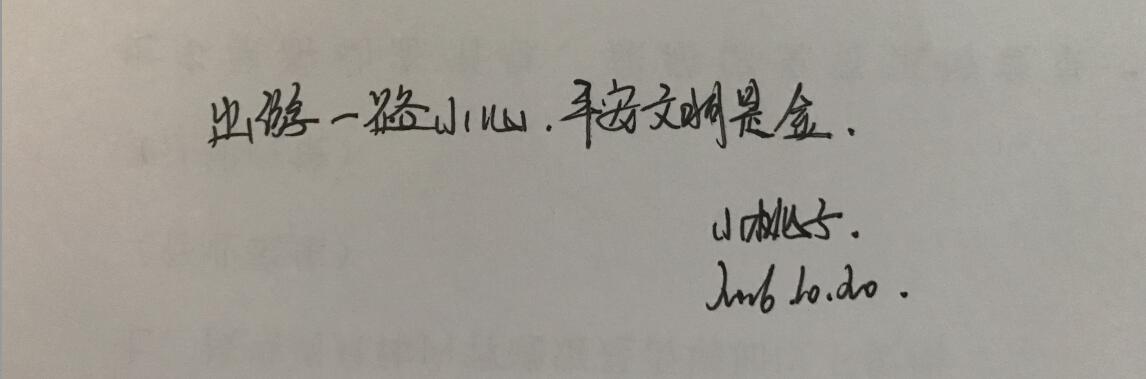 出游一路小心.平安文明是金.
小桃子.
2016.10.20.